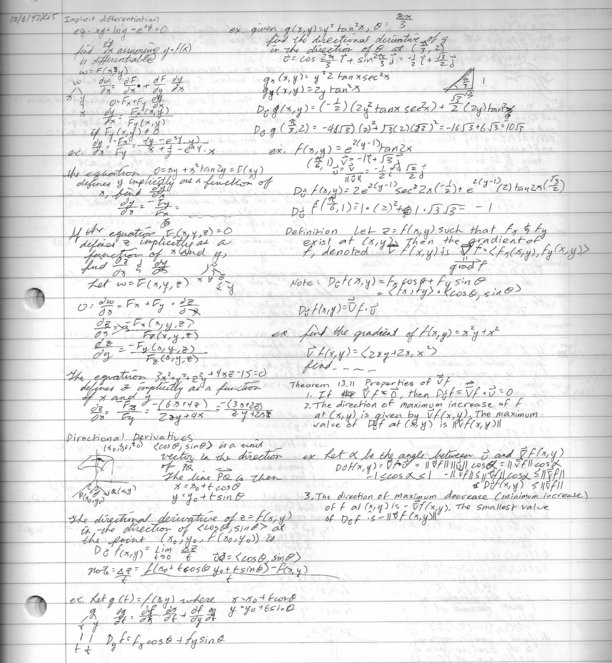 Implicit differentiation
eg. xy + ln y - e^xy = 0
find dy/dx assuming y = f(x)
is differentiable
w = F(x, y)
dw/dx = dF/dx + dF/dy dy/dx
0 = Fx + Fy dy/dx
dy/dx = -Fx(x, y)/Fy(x, y)
if Fy(x, y) ≠ 0
the equation
defines y implicitly as a function of
x, find dy/dx
dy/dx = -Fy/Fx
If the equation F(x, y, z) = 0
defines z implicitly as a
function of x and y,
find dz/dx & dz/dy
Let w = F(x, y, z)
0 = dw/dx = Fx + Fy · dz/dx
dz/dx = -Fx(x, y, z)
dz/dy = -Fy(x, y, z)/Fz(x, y, z)
The equation
defines z implicitly as a function
of x and y
Directional Derivatives
<cosθ, sinθ> is a unit
vector in the direction
of PQ
The line PQ is then
x = x₀ + t cosθ
y = y₀ + t sinθ
The directional derivative of z = f(x, y)
in the direction of <cosθ, sinθ> at
the point (x₀, y₀, f(x₀, y₀)) is
Dûf(x, y) = lim t→0 Δz/t û = <cosθ, sinθ>
note: Δz/t = f(x₀ + t cosθ, y₀ + t sinθ) - f(x, y)/t
ex. Let g(t) = f(x, y) where x = x₀ + t cosθ
y = y₀ + t sinθ
dg/dt = df/dx dx/dt + df/dy dy/dt
Dgf = fx cosθ + fy sinθ
ex. given g(x, y) = y² tan²x, θ = 2π/3
find the directional derivative of g
in the direction of θ at (π/3, 2)
û = cos 2π/3 i + sin 2π/3 j = -1/2 i + √3/2 j
gx(x, y) = y² 2 tanx sec²x
gy(x, y) = 2y tan²x
Dûg(x, y) = (-1/2)(2y² tanx sec²x) + √3/2 (2y) tan²x
Dûg(π/3, 2) = -4(√3)(2)² + √3(2)(√3)² = -16√3 + 6√3 = 10√3
ex. f(x, y) = e^2(y-1) tan2x
(π/6, 1), v = -i + √3 j
Dûf(x, y) = 2e^2(y-1) sec²2x(-1/2) + e^2(y-1)(2) tan2x(√3/2)
Dûf(π/6, 1) = -1·(2)² + 1·√3·√3 = -1
Definition Let z = f(x, y) such that fx & fy
exist at (x, y). Then the gradient of
f, denoted ∇f(x, y) is ∇f = <fx(x, y), fy(x, y)>
grad f
Note: Dûf(x, y) = fx cosθ + fy sinθ
= <fx, fy> · <cosθ, sinθ>
Dûf(x, y) = ∇f · û
ex find the gradient of f(x, y) = x²y + x²
∇f(x, y) = <2xy + 2x, x²>
find. - - - -
Theorem 13.11 Properties of ∇f
1. If ∇f = 0, then Dûf = ∇f · û = 0
2. The direction of maximum increase of f
at (x, y) is given by ∇f(x, y). The maximum
value of Dûf at (x, y) is ||∇f(x, y)||
ex. Let α be the angle between û and ∇f(x, y)
Dûf(x, y) = ∇f · û = ||∇f|| ||û|| cosα = ||∇f|| cosα
-1 ≤ cosα ≤ 1 -||∇f|| ≤ ||∇f|| cosα ≤ ||∇f||
Dûf(x, y) ≤ ||∇f||
3. The direction of maximum decrease (minimum increase)
of f at (x, y) is -∇f(x, y). The smallest value
of Dûf is -||∇f(x, y)||